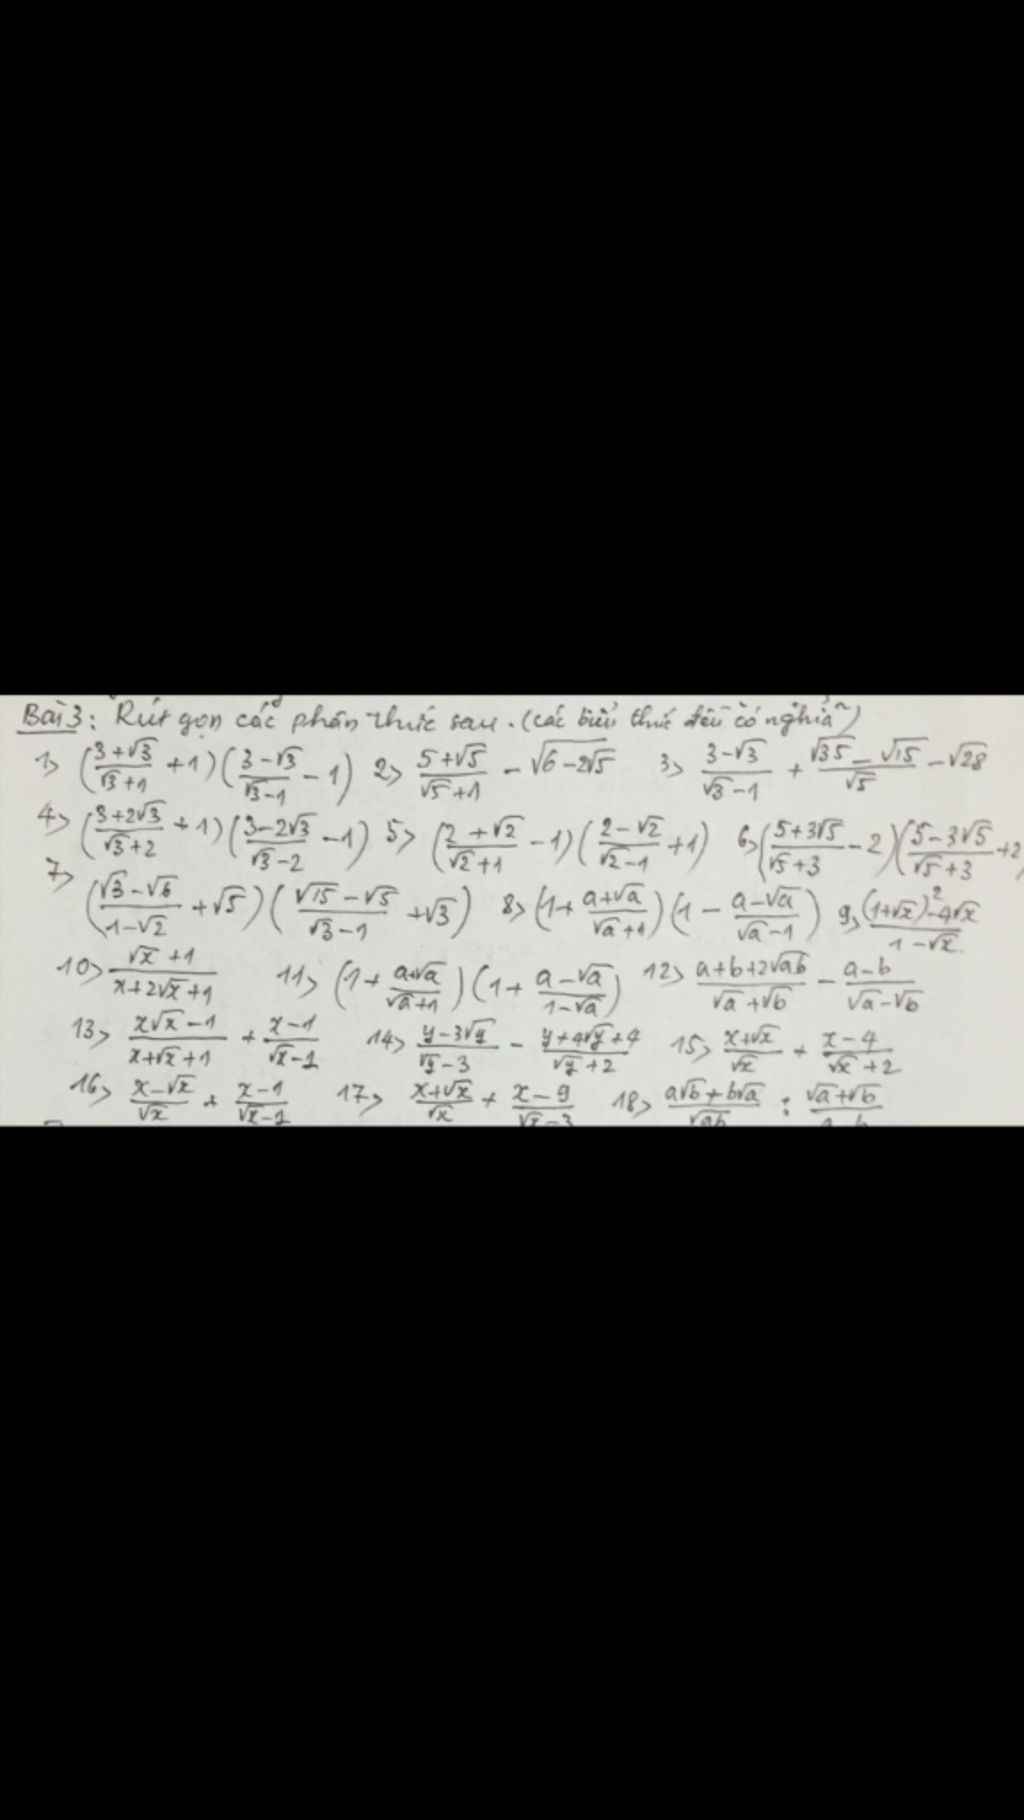 Bài 3: Rút gọn các phân thức sau. (các biểu thức đều có nghĩa)
1> ((3+√3)/(√3+1) + 1)((3-√3)/(√3-1) - 1) 2> (5+√5)/(√5+1) - √(6-2√5) 3> (3-√3)/(√3-1) + (√35-√15)/√5 - √28
4> ((3+2√3)/(√3+2) + 1)((3-2√3)/(√3-2) - 1) 5> ((2+√2)/(√2+1) - 1)((2-√2)/(√2-1) + 1) 6> ((5+3√5)/(√5+3) - 2)((5-3√5)/(√5+3) + 2)
7> ((√3-√6)/(1-√2) + √5)((√15-√5)/(√3-1) + √3) 8> (1 + (a+√a)/(√a+1))(1 - (a-√a)/(√a-1)) 9> ((1+√x)²-4√x)/(1-√x)
10> (√x+1)/(x+2√x+1) 11> (1 + (a+√a)/(√a+1))(1 + (a-√a)/(1-√a)) 12> (a+b+2√ab)/(√a+√b) - (a-b)/(√a-√b)
13> (x√x-1)/(x+√x+1) + (x-1)/(√x-1) 14> (y-3√y)/(√y-3) - (y+4√y+4)/(√y+2) 15> (x+√x)/√x + (x-4)/(√x+2)
16> (x-√x)/√x + (x-1)/(√x-1) 17> (x+√x)/√x + (x-9)/(√x-3) 18> (a√b+b√a)/√ab : (√a+√b)/(a-b)